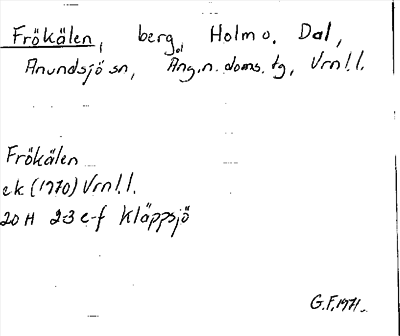 Frökälen, berg, Holm o. Dal,
Anundsjö sn, Ång.n. doms.tg, Vrnl.l.
Frökälen
ek (1970) Vrnl.l.
20 H 2-3 e-f Kläppsjö
G.F. 1971.